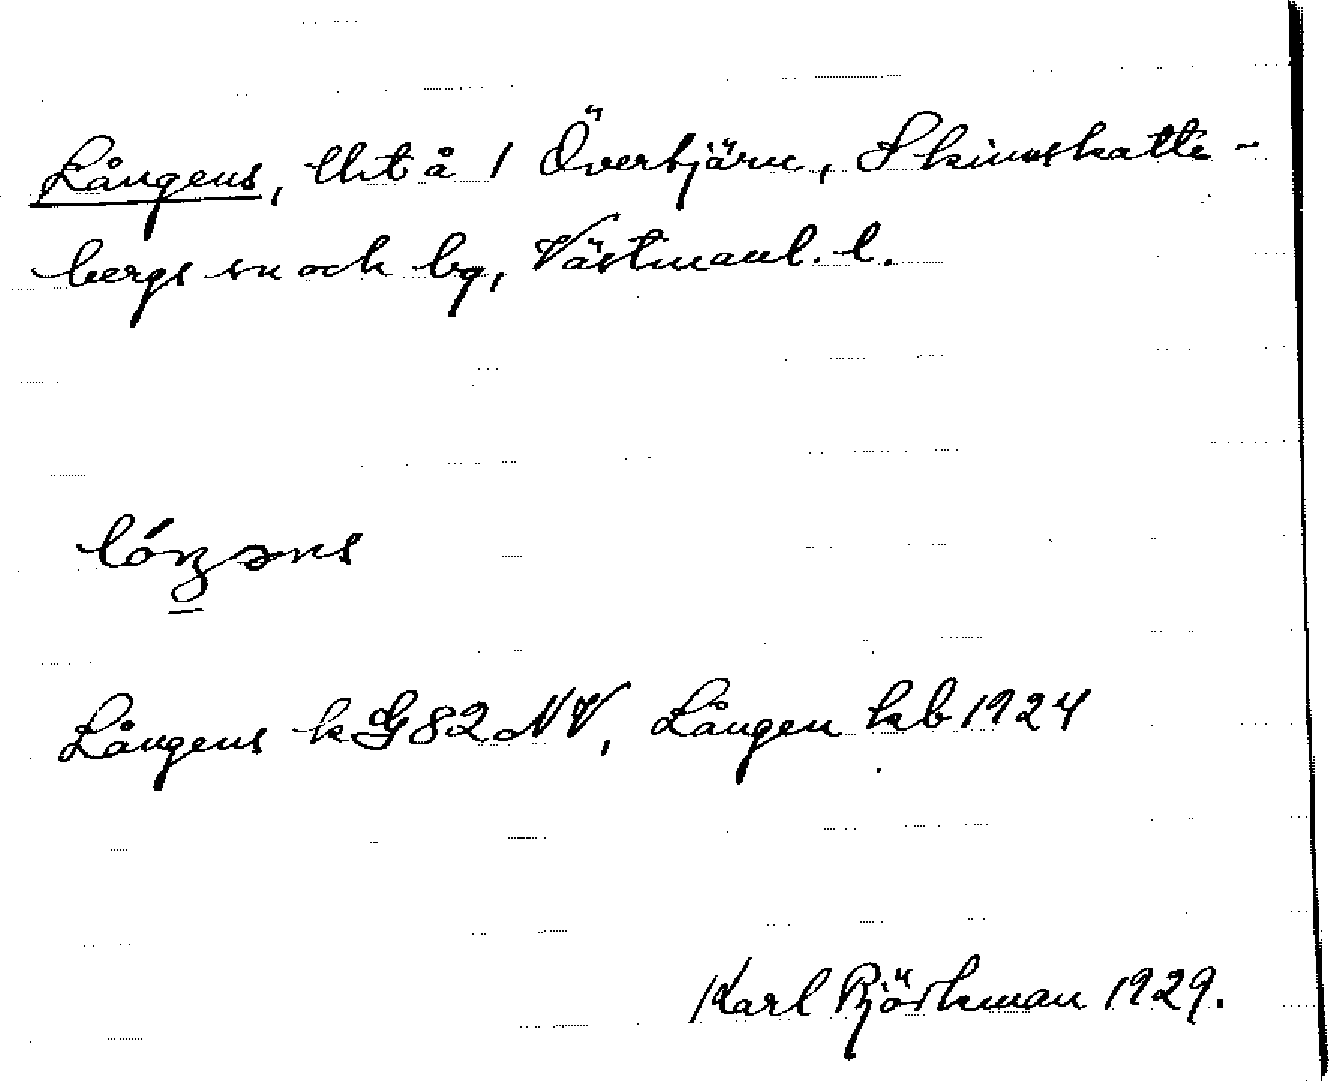 Långens, lht å 1 Överbjärn, Skinnskatte-
bergs sn och bg, Västmanl. l.
lóŋəns
Långens k G 82 NV, Lången kb 1924
Karl Björkman 1929.